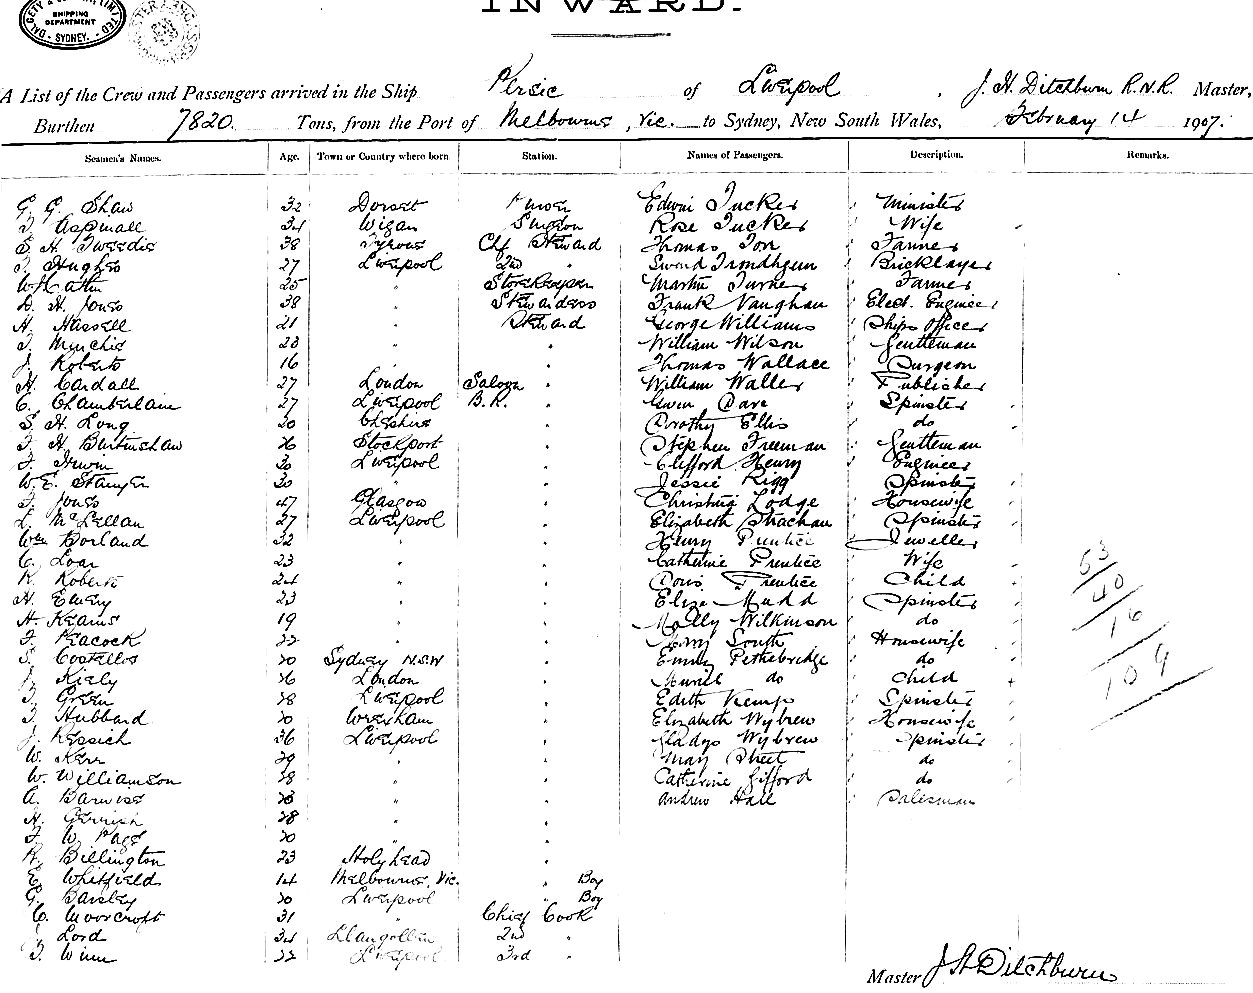 DALGETY & COMPANY LIMITED
SHIPPING
DEPARTMENT
SYDNEY.
INWARD.
A List of the Crew and Passengers arrived in the Ship Persic of Liverpool, J. H. Ditchburn R.N.R. Master,
Burthen 7820 Tons, from the Port of Melbourne, Vic. to Sydney, New South Wales, February 14 1907.
Seamen's Names. Age. Town or Country where born Station. Names of Passengers. Description. Remarks.
G. G. Shaw 32 Dorset Purser Edwin Tucker Minister
J. Aspinall 34 Wigan Surgeon Rose Tucker Wife
S. H. Tweedie 38 Tyrone Chf Steward Thomas Ion Farmer
J. Hughes 27 Liverpool 2nd " Bricklayer
25 " Storekeeper Martin Turner Farmer
D. H. Jones 38 " Stewardess Frank Vaughan Elect. Engineer
H. Hassell 21 " Steward George Williams Ships Officer
28 " " William Wilson Gentleman
J. Roberts 16 " " Thomas Wallace Surgeon
H. Cardall 27 London Saloon " William Waller Publisher
C. Chamberlain 27 Liverpool B.R. " Gwen Dare Spinster
S. H. Long 20 Cheshire " Dorothy Ellis do
J. H. Burtinshaw 26 Stockport " Stephen Freeman Gentleman
J. Irwin 30 Liverpool " Clifford Henry Engineer
W. E. 30 " " Jessie Rigg Spinster
J. Jones 47 Glasgow " Lodge Housewife
L. McLellan 27 Liverpool " Elizabeth Strachan Spinster
Wm Borland 32 " " Henry Prentice Jeweller
C. Loan 23 " " Catherine Prentice Wife
R. Roberts 24 " " Doris Prentice Child
H. Emery 23 " " Eliza Mudd Spinster
H. Keams 19 " " Molly Wilkinson do
J. Peacock 22 " " South Housewife
S. Costelloe 20 Sydney N.S.W " Emily Pethebridge do
J. Kiely 26 London " Muriel do Child
J. Green 28 Liverpool " Edith Kemp Spinster
J. Hubbard 20 Wrexham " Elizabeth Wybrew Housewife
J. Kessich 36 Liverpool " Gladys Wybrew Spinster
W. Kerr 29 " " May Street do
W. Williamson 28 " " Catherine Gifford do
A. Barwise 28 " " Andrew Hall Salesman
H. Gerrish 28 " "
J. W. Page 20 " "
R. Billington 23 Holyhead "
E. Whitfield 14 Melbourne, Vic. " Boy
G. Bansley 20 Liverpool " Boy
C. Moorcroft 31 " Chief Cook
Lord 34 Llangollen 2nd "
J. Winn 22 Liverpool 3rd "
53
40
16
109
Master J H Ditchburn